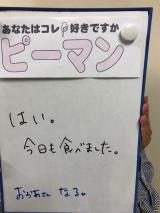 あなたはコレ好きですか
ピーマン
はい。
今日も食べました。
おかあさん なる。